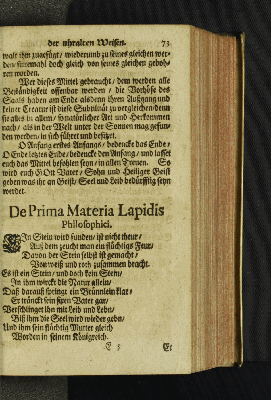 der uhralten Weisen. 73
walt ihm zugefügt / wiederumb zu seines gleichen wer-
den / sintemahl doch gleich von seines gleichen geboh-
ren worden.
Wer dieses Mittel gebraucht / dem werden alle
Beständigkeit offenbar werden / die Vorhöfe des
Saals haben am Ende alsdenn ihren Auffgang und
keiner Creatur ist diese Subtilität zu vergleichen denn
sie alles in allem / so natürlicher Art und Herkommen
nach / als in der Welt unter der Sonnen mag gefun-
den werden / in sich führet und besitzet.
O Anfang erstes Anfangs / bedencke das Ende /
O Ende letztes Ende / bedencke den Anfang / und lasset
euch das Mittel befohlen seyn / in allen Treuen. So
wird euch GOtt Vater / Sohn und Heiliger Geist
geben was ihr an Geist / Seel und Leib bedürfftig seyn
werdet.
De Prima Materia Lapidis
Philosophici.
EIn Stein wird funden / ist nicht theur /
Auß dem zeucht man ein flüchtigs Feur /
Davon der Stein selbst ist gemacht /
Von weiß und roth zusammen bracht.
Es ist ein Stein / und doch kein Stein /
In ihm wirckt die Natur allein /
Daß darauß springt ein Brünnlein klar /
Er tränckt sein fixen Vater gar /
Verschlinget ihn mit Leib und Lebn /
Biß ihm die Seel wird wieder gebn /
Und ihm sein flüchtig Mutter gleich
Worden in seinem Königreich.
E 5 Er